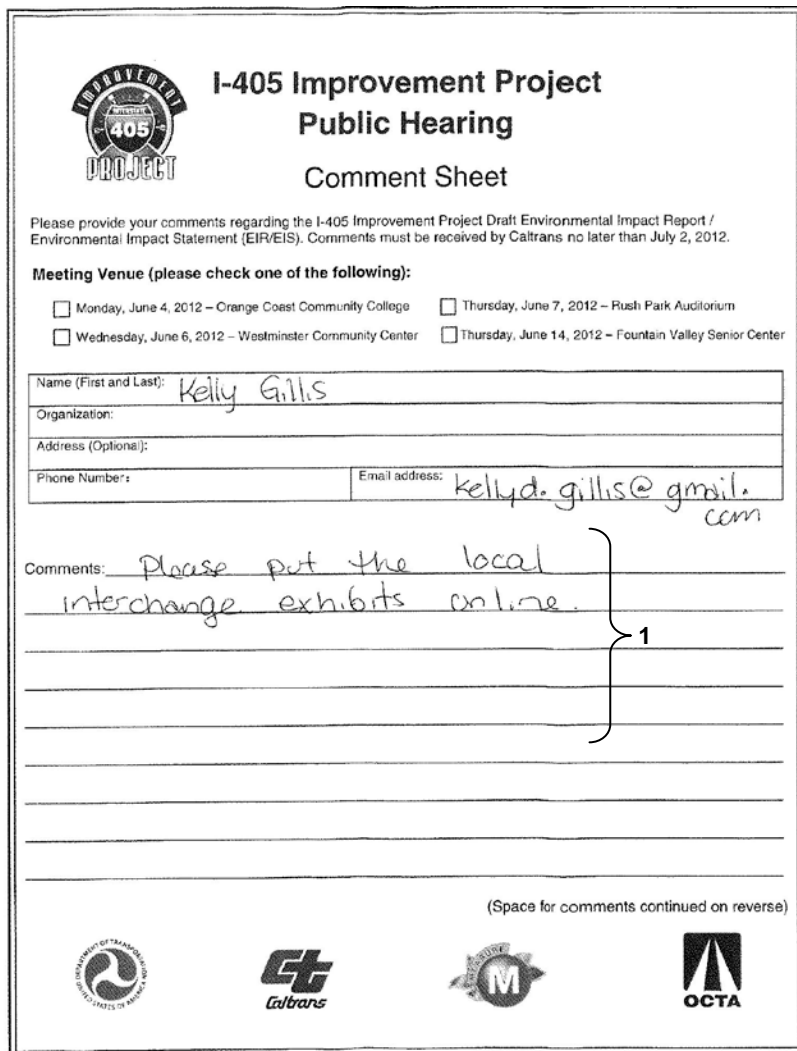 IMPROVEMENT
INTERSTATE
405
PROJECT
I-405 Improvement Project
Public Hearing
Comment Sheet
Please provide your comments regarding the I-405 Improvement Project Draft Environmental Impact Report /
Environmental Impact Statement (EIR/EIS). Comments must be received by Caltrans no later than July 2, 2012.
Meeting Venue (please check one of the following):
Monday, June 4, 2012 – Orange Coast Community College
Thursday, June 7, 2012 – Rush Park Auditorium
Wednesday, June 6, 2012 – Westminster Community Center
Thursday, June 14, 2012 – Fountain Valley Senior Center
Name (First and Last): Kelly Gillis
Organization:
Address (Optional):
Phone Number:
Email address: kellyd.gillis@gmail.
com
Comments: Please put the local
interchange exhibits online.
1
(Space for comments continued on reverse)
DEPARTMENT OF TRANSPORTATION
UNITED STATES OF AMERICA
Ct
Caltrans
MEASURE
M
OCTA